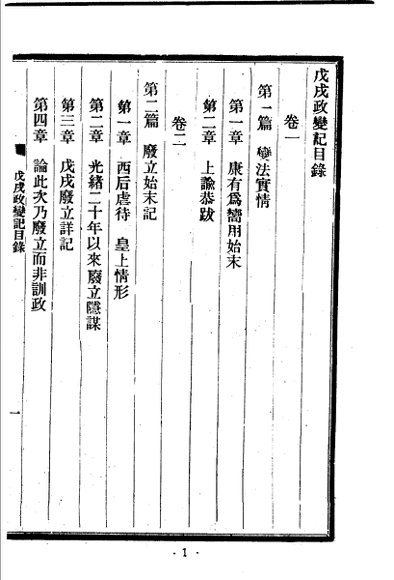 戊戌政變記目錄
卷一
第一篇 變法實情
第一章 康有爲嚮用始末
第二章 上諭恭跋
卷二
第二篇 廢立始末記
第一章 西后虐待 皇上情形
第二章 光緒二十年以來廢立隱謀
第三章 戊戌廢立詳記
第四章 論此次乃廢立而非訓政
戊戌政變記目錄
一
- 1 -